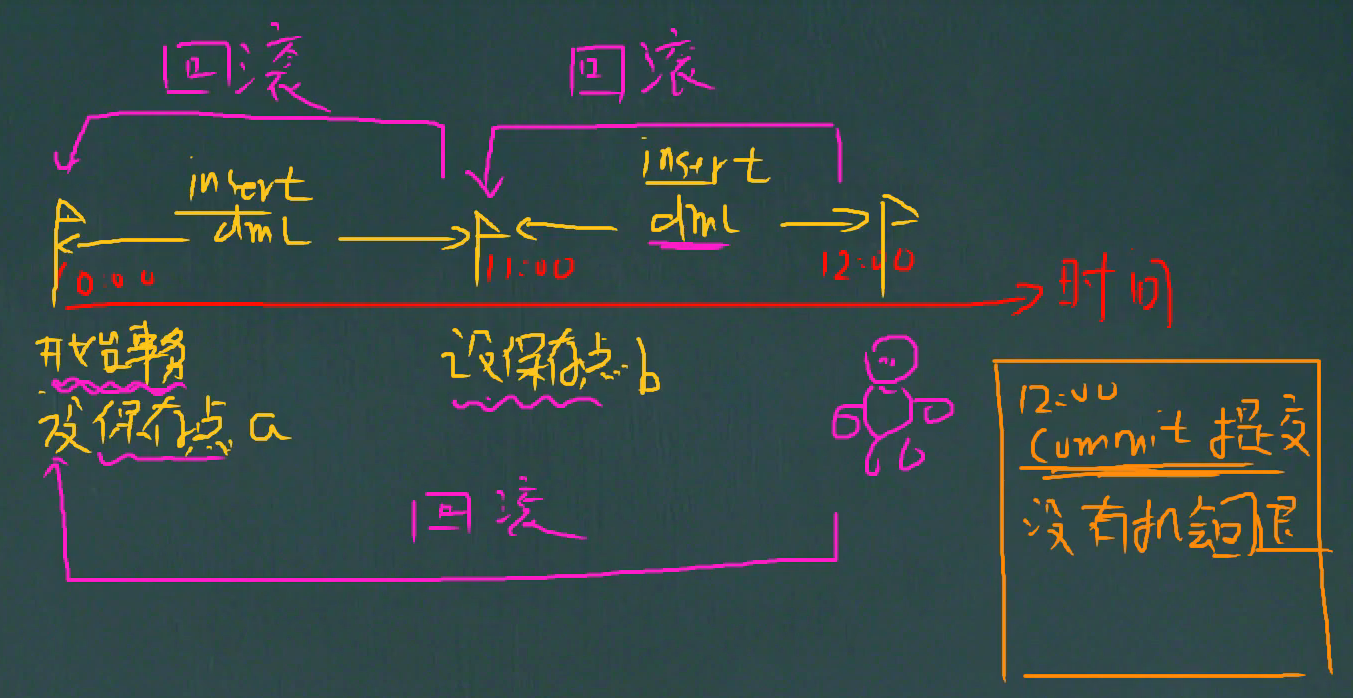 回滚
回滚
insert
dml
insert
dml
10:00
11:00
12:00
时间
开始事务
设保存点 a
设保存点 b
回滚
12:00
Commit 提交
没有机会回退